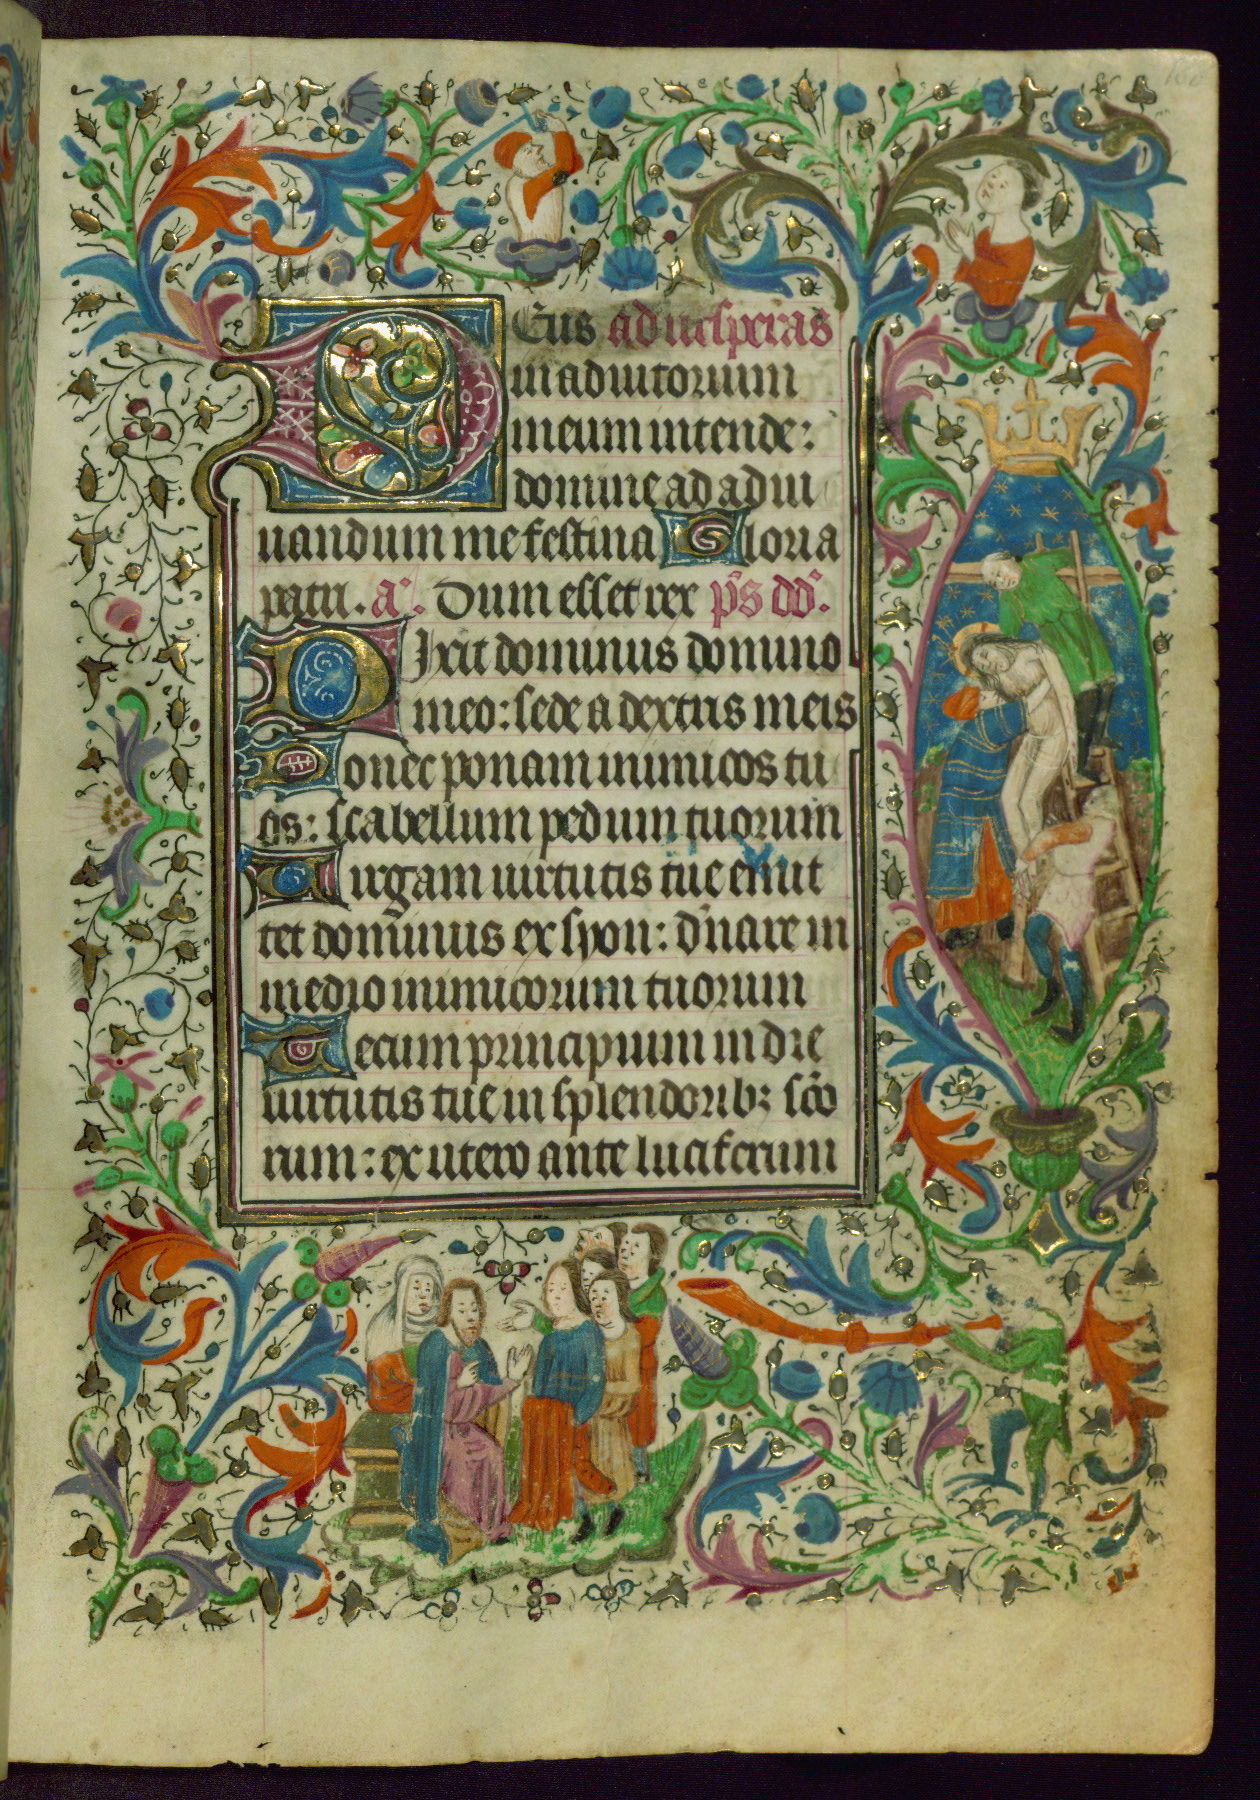 Deus ad uesperas
in adiutorium
meum intende:
domine ad adiu
uandum me festina Gloria
patri. a͛. Dum esset rex p̄s dd̄.
Dixit dominus domino
meo: sede a dextris meis
Donec ponam inimicos tu
os: scabellum pedum tuorum
Uirgam uirtutis tue emit
tet dominus ex syon: dn̄are in
medio inimicorum tuorum
Tecum principium in die
uirtutis tue in splendorib; sc̄o
rum: ex utero ante luciferum